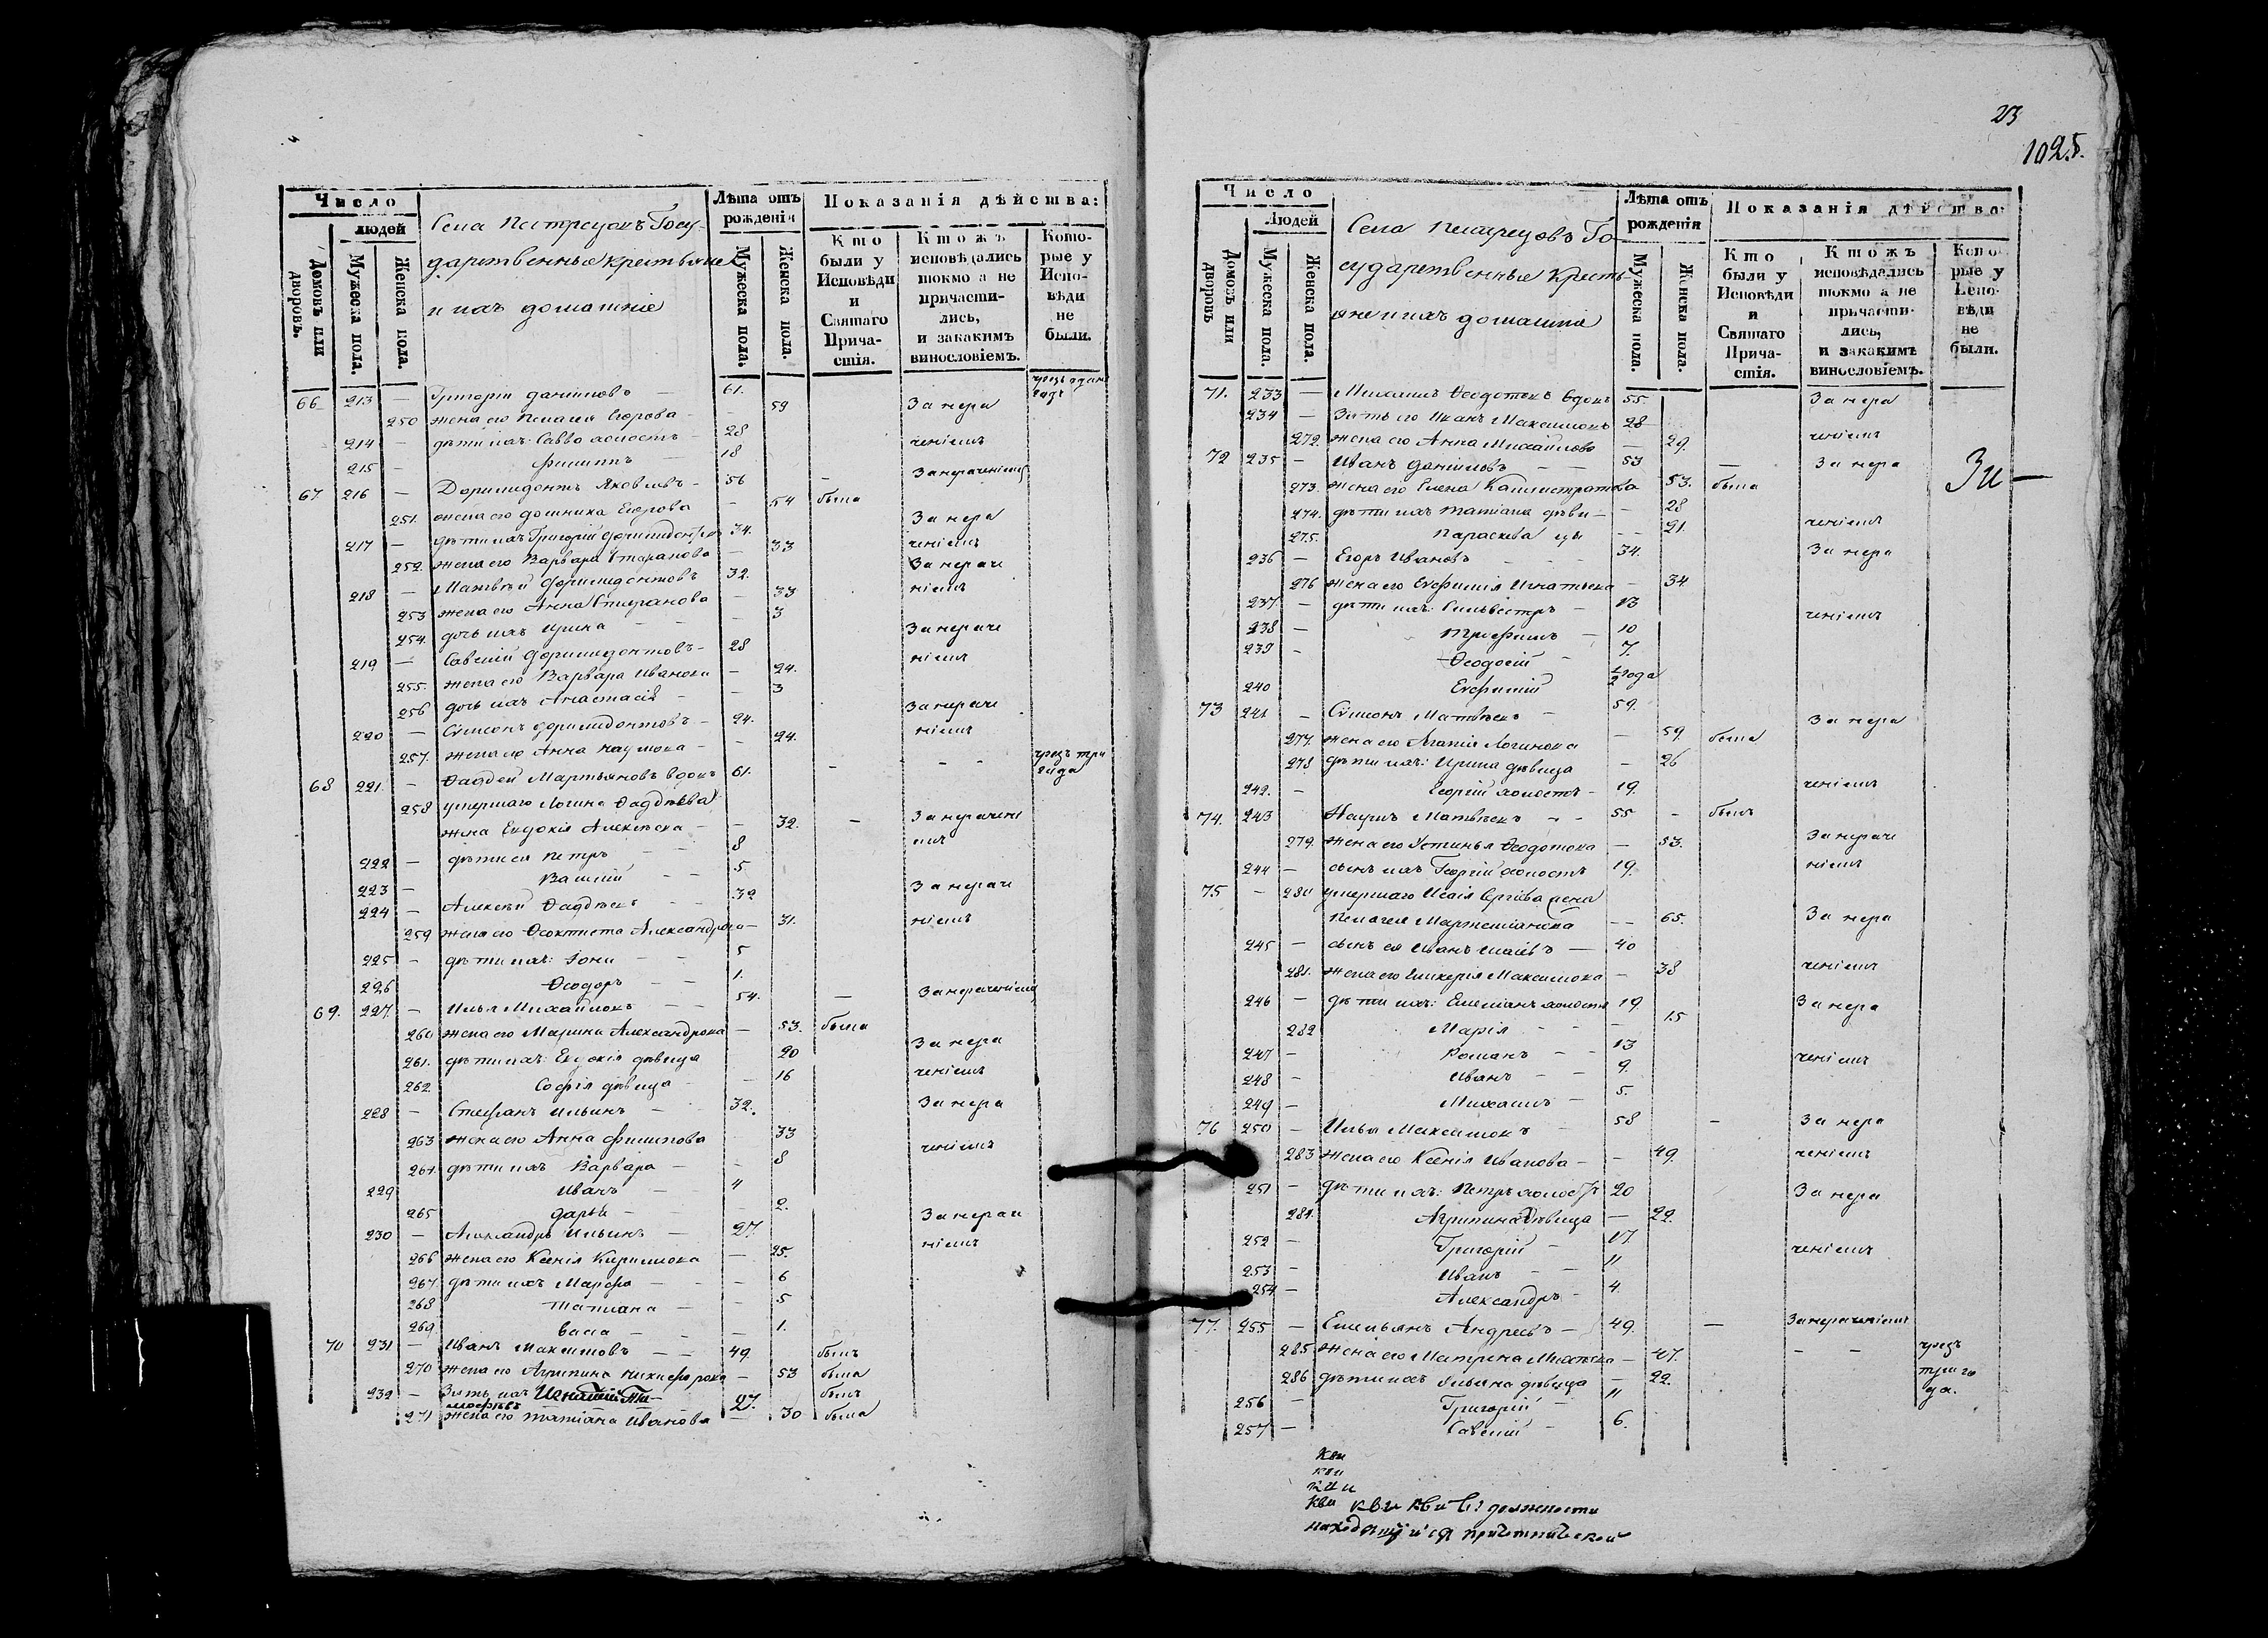 Число
людей
Домовъ или дворовъ.
Мужеска пола.
Женска пола.
Села Пестрецовъ Госу-
дарственные крестьяне
и ихъ домашніе
Лѣта отъ рожденія
Мужеска пола.
Женска пола.
Показанія дѣйства:
Кто были у Исповѣди и Святаго Причастія.
Ктожъ исповѣдались токмо а не причастились, и закакимъ винословіемъ.
Которые у Исповѣди не были.
66 213 — Григорій Даніиловъ — 61.
250 жена его Пелагея Егорова — 59 За нера
214 — дѣти ихъ: Савва холостъ — 28 ченіемъ
215 — Филиппъ — 18
67 216 — Доримидонтъ Яковлевъ — 56 — За нераченіемъ
251. жена его Домника Егорова — 54 была
217 — дѣти ихъ Григорій Доримидонтовъ 34. За нера
252. жена его Варвара Стефанова — 33 ченіемъ
218 — Матвѣй Доримидонтовъ 32. За нераче
253 жена его Анна Стефанова — 33 ніемъ
254. дочь ихъ Ирина — — 3
219 — Савелій Доримидонтовъ — 28 За нераче
255. жена его Варвара Иванова — 24. ніемъ
256 дочь ихъ Анастасія — — 3
220 — Сѵмеонъ Доримидонтовъ — 24. За нераче
257. жена его Анна Наумова — — 24. ніемъ
68 221. — Ѳаддей Мартьяновъ вдовъ 61. — — — чрезъ три года
258 умершаго Логина Ѳаддѣева
жена Евдокія Алексѣева — — 32. — За нерачені
222 — дѣти ея Петръ — — 8 емъ
223 — Василій — — 5
224 — Алексѣй Ѳаддѣевъ — — 32 За нераче
259 жена его Ѳеоктиста Александрова — 31. ніемъ
225 — дѣти ихъ: Іона — — 5
226 Ѳеодоръ — — 1.
69. 227. — Илья Михайловъ — — 54. — За нераченіемъ
260 жена его Марина Александрова — 53. была
261. дѣти ихъ: Евдокія дѣвица 20 За нера
262. Софія дѣвица — — 16 ченіемъ
228 — Стефанъ Ильинъ — 32. За нера
263 жена его Анна Филипова 33
264. дѣти ихъ Варвара — — 8 ченіемъ
229 Иванъ — 4
265 Дарья — — — 2.
230 — Александръ Ильинъ — 27. За нераче
266 жена его Ксенія Кирилова — 25. ніемъ
267. дѣти ихъ Марфа — — — 6
268 Татіана — — 5
269. Васса — — — 1.
70 231 — Иванъ Максимовъ — — 49. былъ
270 жена его Агрипина Никифорова — 53 была
232 — Зять ихъ Игнатій Ти-
мофѣевъ 27. былъ
271 жена его Татіана Иванова — 30 была
23
1025.
Число
Людей
Домовъ или дворовъ
Мужеска пола.
Женска пола.
Села Пестрецовъ Го-
сударственные Кресть-
яне и ихъ домашніе
Лѣта отъ рожденія
Мужеска пола.
Женска пола.
Показанія дѣйства:
Кто были у Исповѣди и Святаго Причастія.
Ктожъ исповѣдались токмо а не причастились, и закакимъ винословіемъ.
Которые у Исповѣди не были.
71. 233 — Михаилъ Ѳеодотовъ вдовъ 55 За нера
234 — Зять его Иванъ Максимовъ 28
272. жена его Анна Михайлова — 29. ченіемъ
72 235 — Иванъ Даніиловъ — — 53 — За нера
273. жена его Елена Калистратова 53. была
274. дѣти ихъ Татіана дѣви — — 28
275. Параскева цы — — 21. ченіемъ
236 — Егоръ Ивановъ — — — 34. За нера
276 жена его Евфимія Игнатьева — 34
237. — дѣти ихъ: Сильвестръ — 13
238 — Трифилъ — 10 ченіемъ
239 — Ѳеодосій — 7.
240 Евфимій ½ года
73 241 — Сѵмеонъ Матвѣевъ — 59. За нера
277. жена его Агапія Логинова — 59 была
278. дѣти ихъ: Ирина дѣвица — 26
242. — Георгій холостъ — 19. ченіемъ
74. 243 Наумъ Матвѣевъ — — 55 — былъ
279. жена его Устинья Ѳеодотова — 53. За нераче
244 — сынъ ихъ Георгій холостъ 19. ніемъ
75 — 280 умершаго Исаія Сергіева жена
Пелагея Мартеміанова — — 65. За нера
245 — сынъ ея Иванъ Исаіевъ — 40
281. жена его Гликерія Максимова — 38 ченіемъ
246 — дѣти ихъ: Емеліанъ холостъ 19. За нера
282 Марія — — — 15
247 — Романъ — — 13
248 — Иванъ — — 9. ченіемъ
249 — Михаилъ — 5.
76 250 — Илья Максимовъ — 58 — За нера
283 жена его Ксенія Иванова — — 49. ченіемъ
251 — дѣти ихъ: Петръ холостъ 20 За нера
284. Агрипина дѣвица — 22.
252 — Григорій — 17. ченіемъ
253 — Иванъ — — 11
254 — Александръ — 4.
77. 255 — Емельянъ Андреевъ — 49. — За нераченіемъ
285 жена его Матрена — 47. — — чрезъ
286 дѣти ихъ Ульяна дѣвица — 22. три го
256 — Григорій — 11 да.
257 — Савелій — 6.
кви
кви
кви
кви кви въ должности